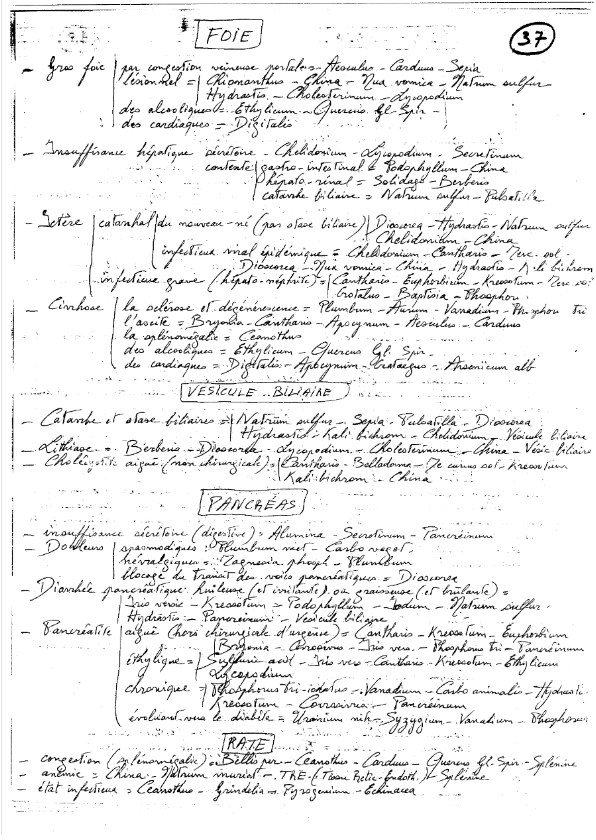 37
FOIE
- Gros foie par congestion veineuse portale = Aesculus - Carduus - Sepia
lésionnel = Chionanthus - China - Nux vomica - Natrum sulfur
Hydrastis - Cholesterinum - Lycopodium
des alcooliques = Ethylicum - Quercus Gl. Spir -
des cardiaques = Digitalis
- Insuffisance hépatique sécrétoire - Chelidonium - Lycopodium - Secretinum
contexte gastro-intestinal = Podophyllum - China
hépato-rénal = Solidago - Berberis
catarrhe biliaire = Natrum sulfur - Pulsatilla
- Ictère catarrhal du nouveau-né (par stase biliaire) Dioscorea - Hydrastis - Natrum sulfur
Chelidonium - China
infectieux viral épidémique = Chelidonium - Cantharis - Merc. sol.
Dioscorea - Nux vomica - China - Hydrastis - Kali bichrom
infectieux grave (hépato-néphrite) = Cantharis - Euphorbium - Kreosotum - Merc. sol
Crotalus - Baptisia - Phosphor.
- Cirrhose la sclérose et dégénérescence = Plumbum - Aurum - Vanadium - Phosphor tri
l'ascite = Bryonia - Cantharis - Apocynum - Aesculus - Carduus
la splénomégalie = Ceanothus
des alcooliques = Ethylicum - Quercus Gl. Spir.
des cardiaques = Digitalis - Apocynum - Crataegus - Arsenicum alb
VÉSICULE BILIAIRE
- Catarrhe et stase biliaires = Natrum sulfur - Sepia - Pulsatilla - Dioscorea
Hydrastis - Kali bichrom - Chelidonium - Vésicule biliaire
- Lithiase = Berberis - Dioscorea - Lycopodium - Cholesterinum - China - Vésic biliaire
Cholécystite aiguë (non chirurgicale) = Cantharis - Belladonna - Mercurius sol - Kreosotum
Kali bichrom - China
PANCRÉAS
- insuffisance sécrétoire (digestive) = Alumina - Secretinum - Pancréinum
- Douleurs spasmodiques : Plumbum met - Carbo veget.
névralgiques = Magnesia phosph - Plumbum
blocage du transit des voies pancréatiques = Dioscorea
- Diarrhée pancréatique huileuse (et irritante) ou graisseuse (et brûlante) =
Iris versic - Kreosotum - Podophyllum - Iodum - Natrum sulfur.
Hydrastis - Pancreinum - Vésicule biliaire
- Pancréatite aiguë (hors chirurgicale d'urgence) = Cantharis - Kreosotum - Euphorbium
Bryonia - Corrosivus - Iris vers. - Phosphorus tri - Pancréinum
éthylique = Sulfuric acid - Iris vers - Cantharis - Kreosotum - Ethylicum
Lycopodium
chronique = Phosphorus tri-iodatus - Vanadium - Carbo animalis - Hydrasti.
Kreosotum - Corrosivus - Pancreinum
évoluant vers le diabète = Uranium nit - Syzygium - Vanadium - Phosphorus
RATE
- congestion (splénomégalie) = Bellis per - Ceanothus - Carduus - Quercus Gl. Spir - Splénine
- anémie = China - Natrum muriat - TRE (Tissu Rétic-Endoth.) - Splénine
- état infectieux = Ceanothus - Grindelia - Pyrogenium - Echinacea